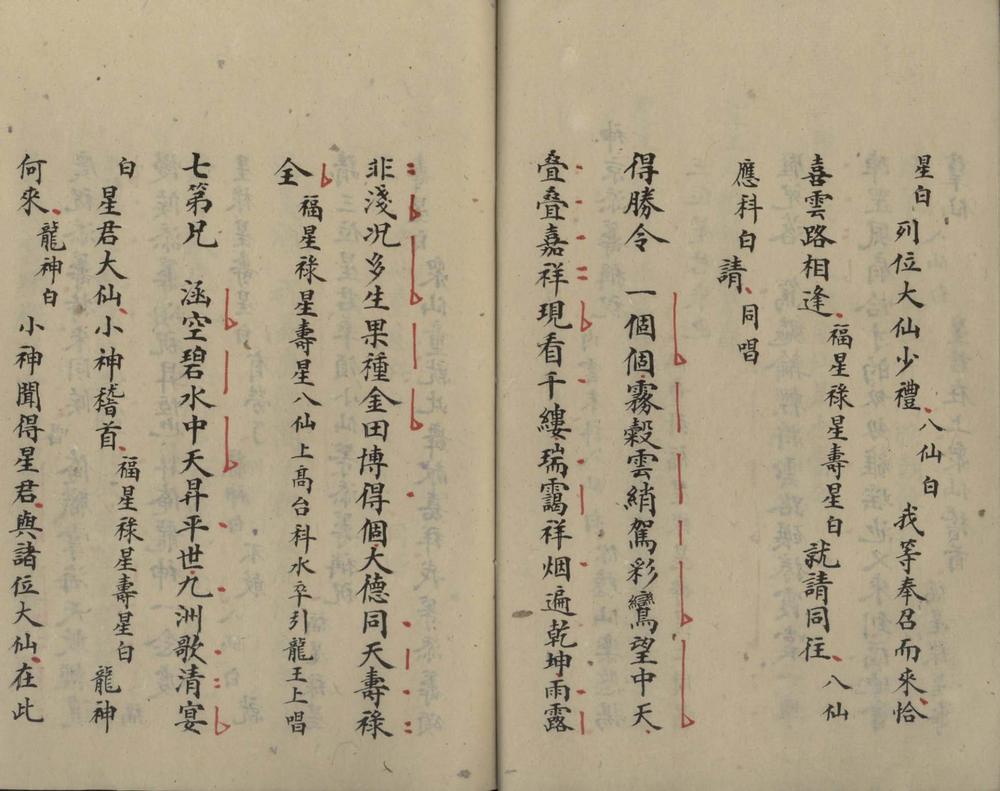 星白　列位大仙少禮、八仙白　我等奉召而來、恰
喜雲路相逢、福星祿星壽星白　就請同往、八仙
應科白請、同唱
得勝令　一個個霧縠雲綃駕彩鸞望中天、
叠叠嘉祥現看千縷、瑞靄祥烟遍乾坤雨露
非淺况多生果種金田博得個大德同天壽祿
全　福星祿星壽星八仙上高台科水卒引龍王上唱
七第兄　涵空碧水中天昇平世、九洲歌清宴
白　星君大仙、小神稽首、福星祿星壽星白　龍神
何來、龍神白　小神聞得星君、與諸位大仙、在此